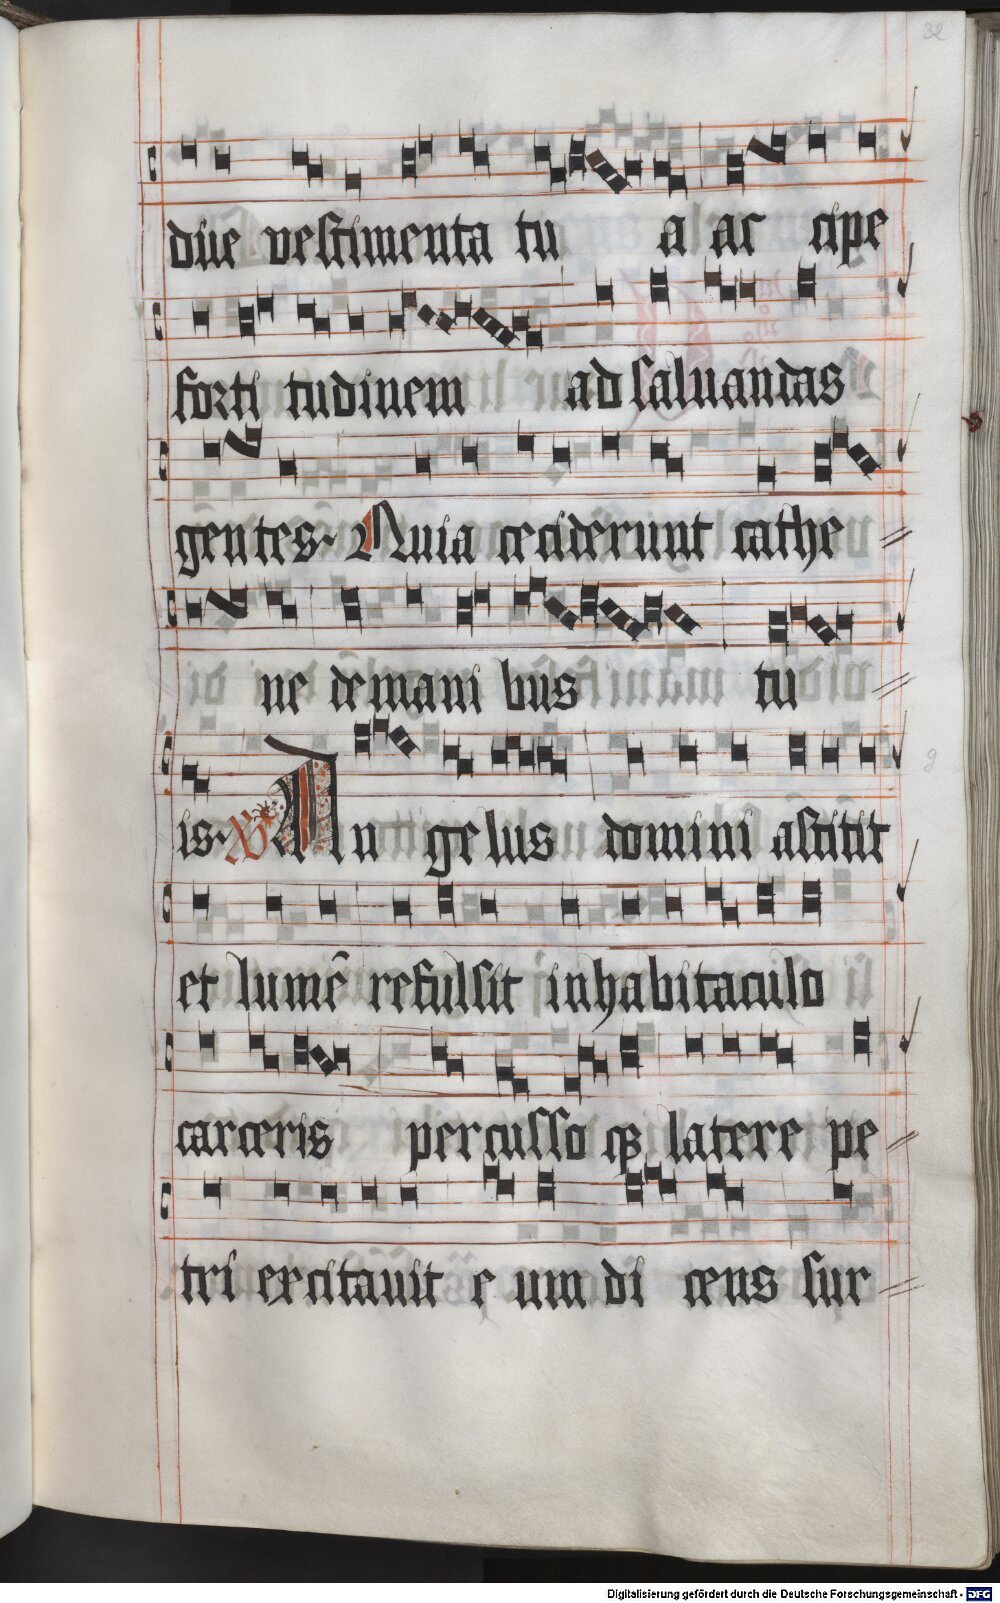 32
due vestimenta tu a ac cipe
forti tudinem ad saluandas
gentes. Quia ceciderunt cathe
ne de mani bus tu
is. V An gelus domini astitit
et lumē refulsit in habitaculo
carceris percusso qꝫ latere pe
tri excitauit e um di cens sur
Digitalisierung gefördert durch die Deutsche Forschungsgemeinschaft - DFG